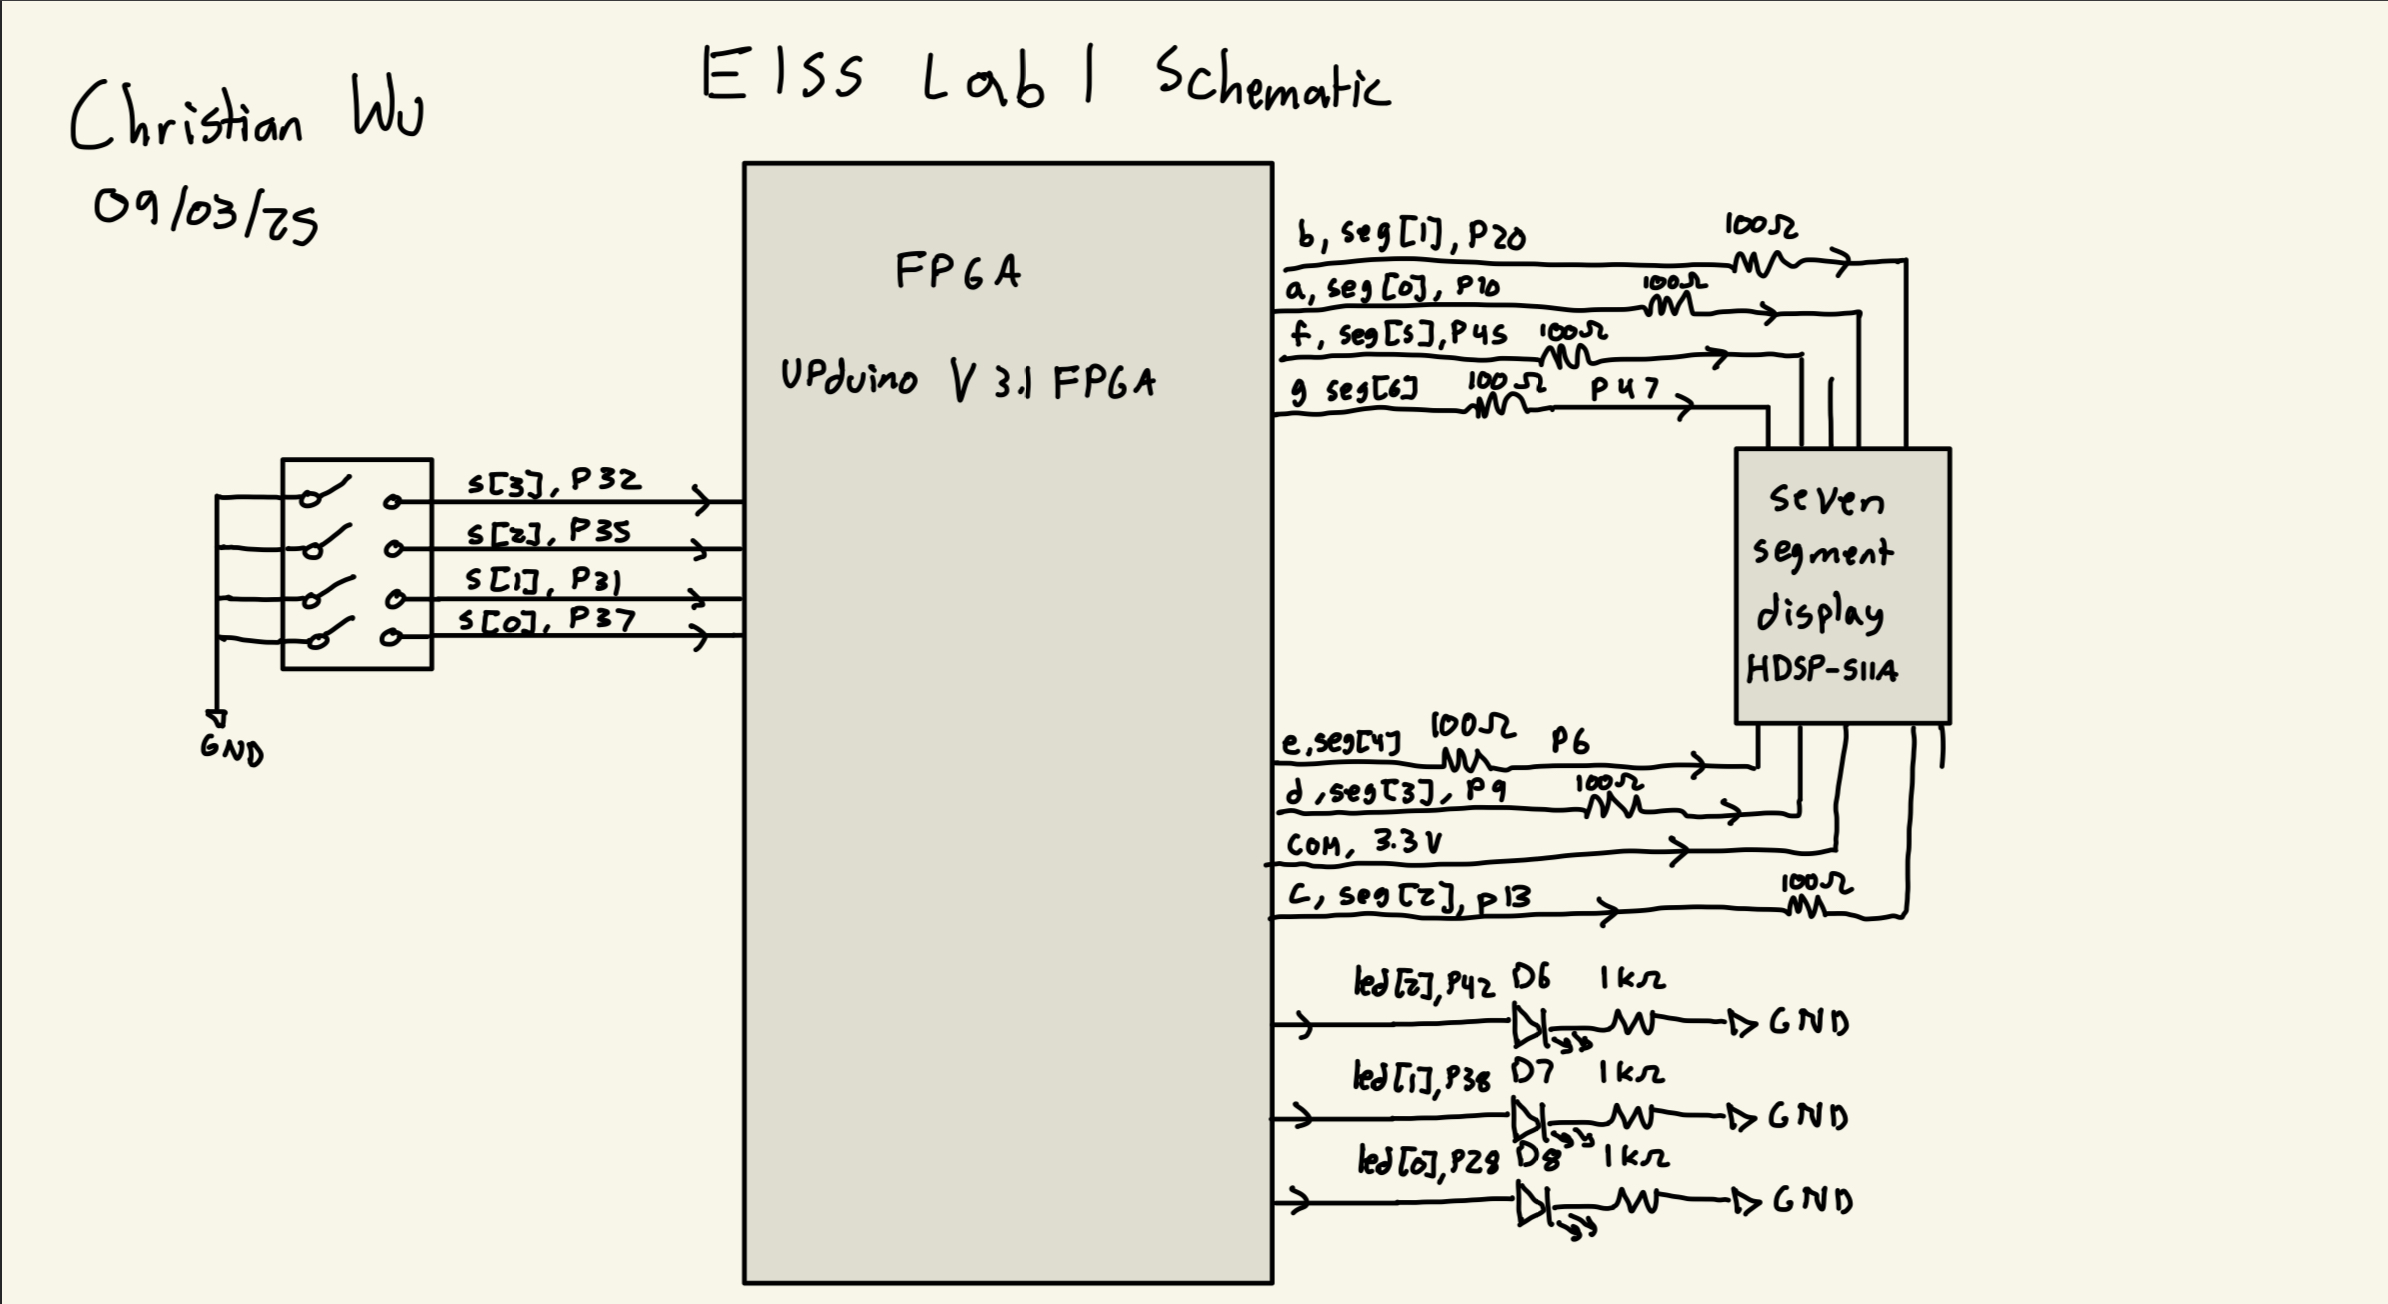 E155 Lab 1 Schematic
Christian Wu
09/03/25
FPGA
UPduino V 3.1 FPGA
b, seg[1], P20
100Ω
a, seg[0], P10
100Ω
f, seg[5], P45
100Ω
g seg[6]
100Ω
P47
s[3], P32
s[2], P35
s[1], P31
s[0], P37
GND
seven
segment
display
HDSP-511A
e, seg[4]
100Ω
P6
d, seg[3], P9
100Ω
COM, 3.3V
C, seg[2], P13
100Ω
led[2], P42 D6 1kΩ
GND
led[1], P38 D7 1kΩ
GND
led[0], P28 D8 1kΩ
GND